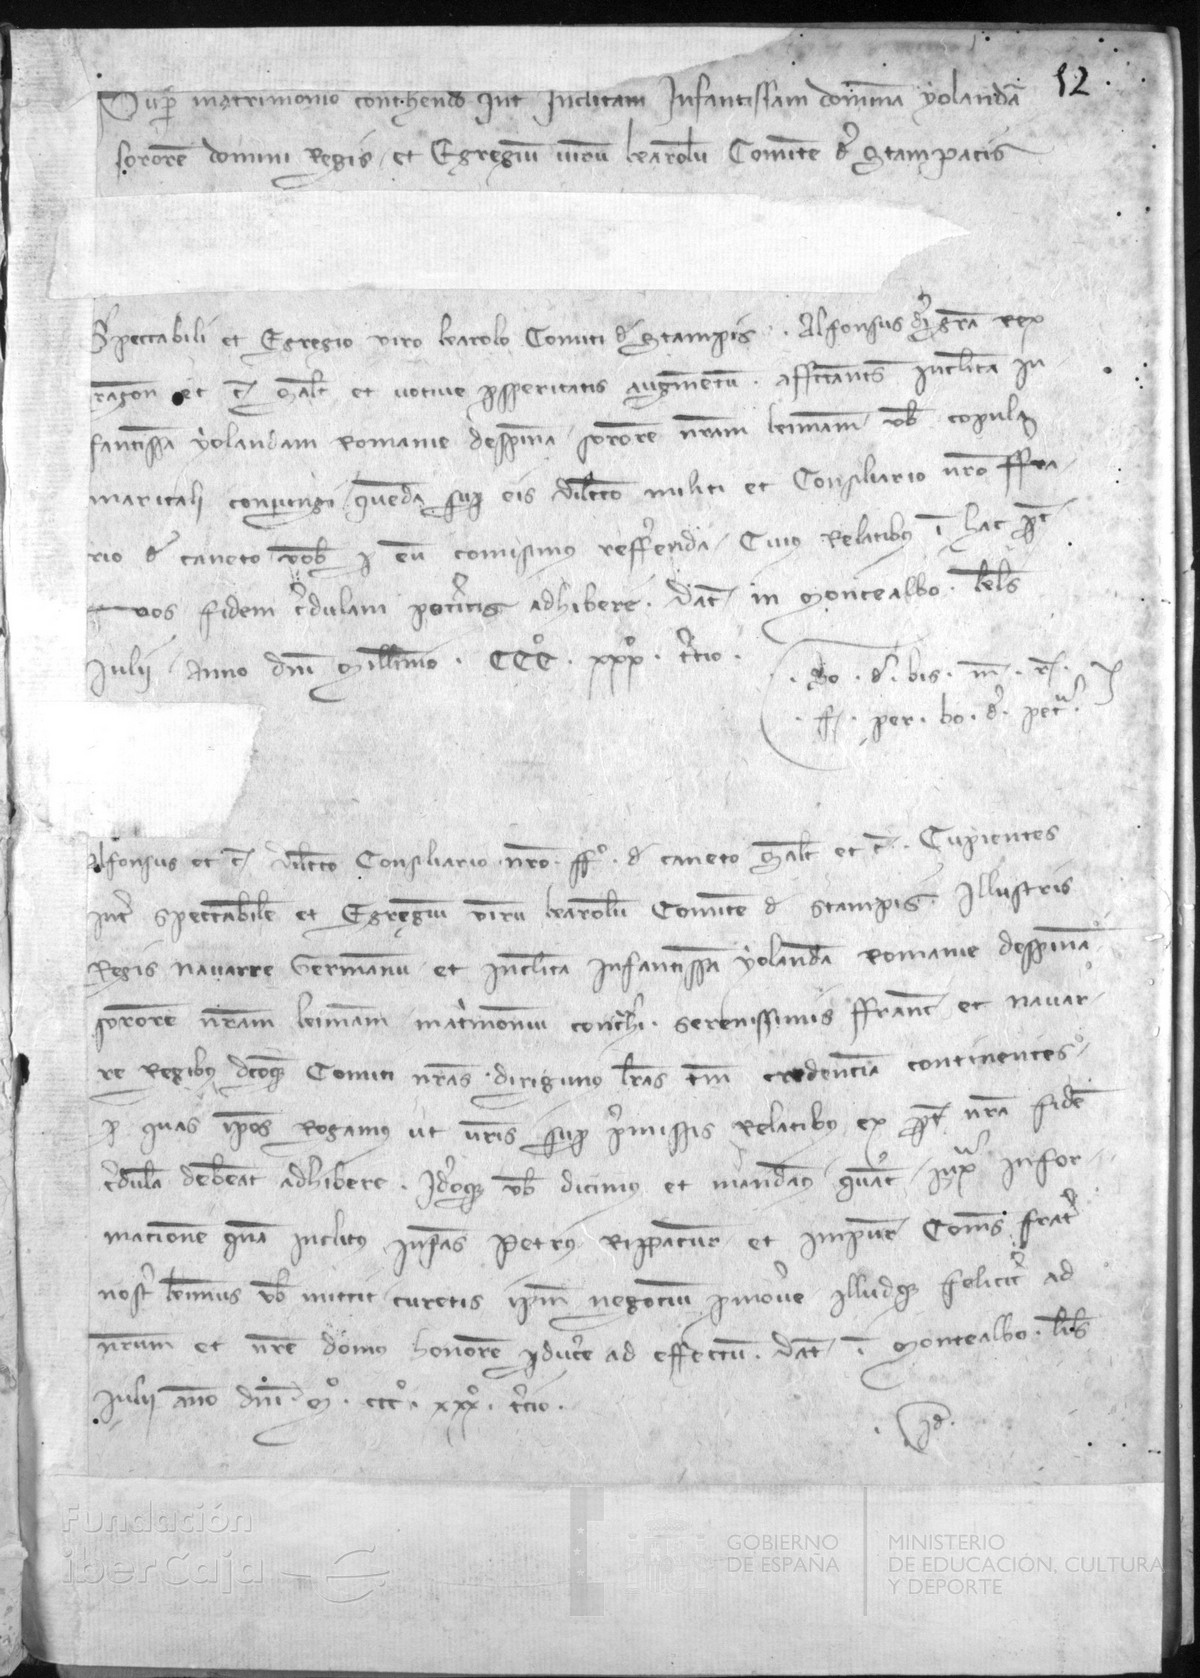 12
Sup matrimonio conthendo Int Inclitam Infantissam dominā yolandā
sororē domini Regis et Egregiū uirū karolū Comitē de Stampacis
Speccabili et Egregio viro karolo Comiti de Stampis . Alfonsus dei grā Rex
ragon et cet salt et votiue psperitatis augmētū . affectants inclitā In
fantissā yolandam Romanie despinā sororē nrām krimam vob copula
maritali coniungi quedā sup eis dilcto militi et Consiliario nro ffra
rio de caneto vob p eū comisimus refferenda Cuius Relatibus ī hac pt
vos fidem cdulam poteritis adhibere . dat in Montealbo . kls
Julii Anno dni Millmo . CCCº . xxxº . tcio .
. bo . d . bis . m . r .
. ff . per . bo . d . petu .
Alfonsus et cet dilcto Consiliario nro ffº de caneto salt et c . Cupientes
int spectabilē et Egregiū virū karolū Comitē de Stampis Illustris
Regis nauarre Germanū et Inclitā Infantissā yolandā Romanie despinā
sororē nrām krimam matrimoniū conthi . serenissimis ffranc et nauar
re Regibus dcoque Comiti nrās dirigimus lrās tm credenciā continentes
p quas ipos Rogamus ut uris sup pmissis Relatibus ex pt nrā fidē
cdulā debeāt adhibere . Idcoque vob dicimus et mandam quat iuxª infor
macionē quā inclitus infas Petrus Rippacur et Impur Comes frat
nost krimus vob mittit curetis ipm negociū pmouē illudque felicit ad
nrum et nrē domus honorē pducē ad effectū . dat ī Montealbo . kls
Julii anō dni . Mº . cccº . xxxº . tcio .
. Id .
Fundación
iberCaja
GOBIERNO
DE ESPAÑA
MINISTERIO
DE EDUCACIÓN, CULTURA
Y DEPORTE